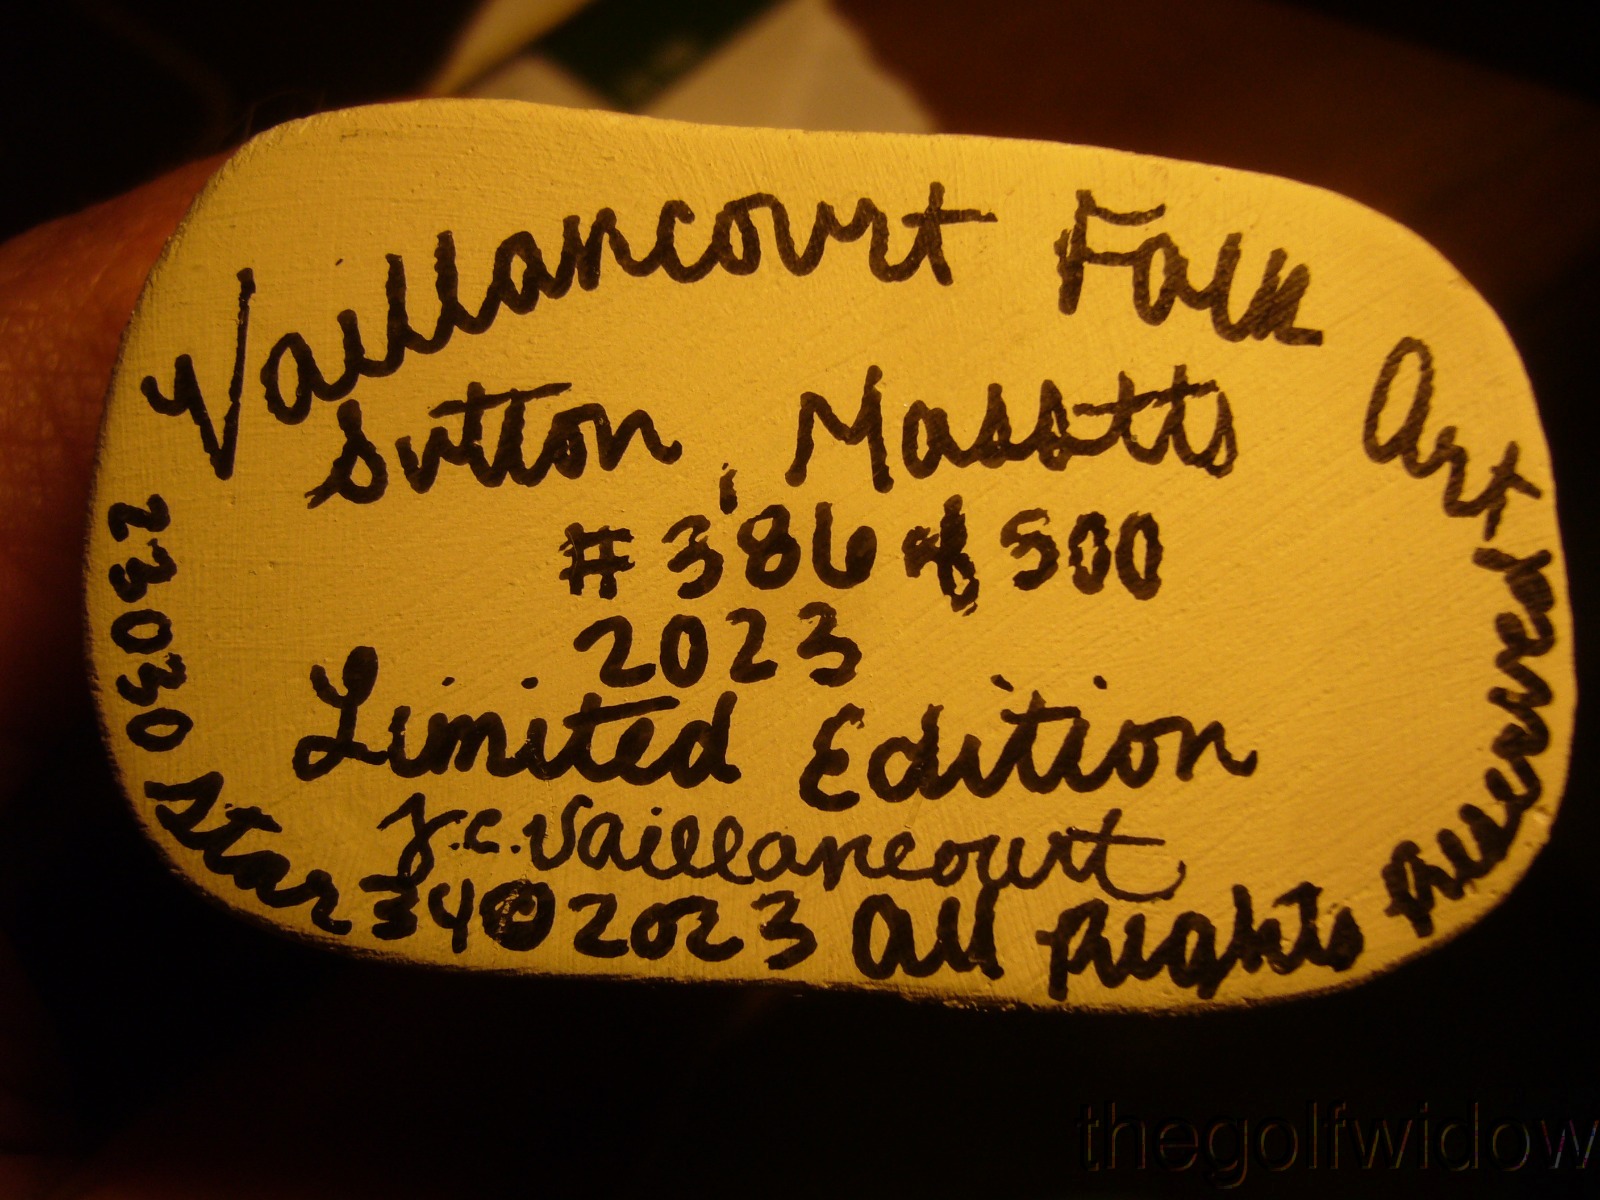 Vaillancourt Folk Art
Sutton, Massetts
#386 of 500
2023
Limited Edition
J.C. Vaillancourt
23030 Star 34 © 2023 All Rights Reserved
thegolfwidow